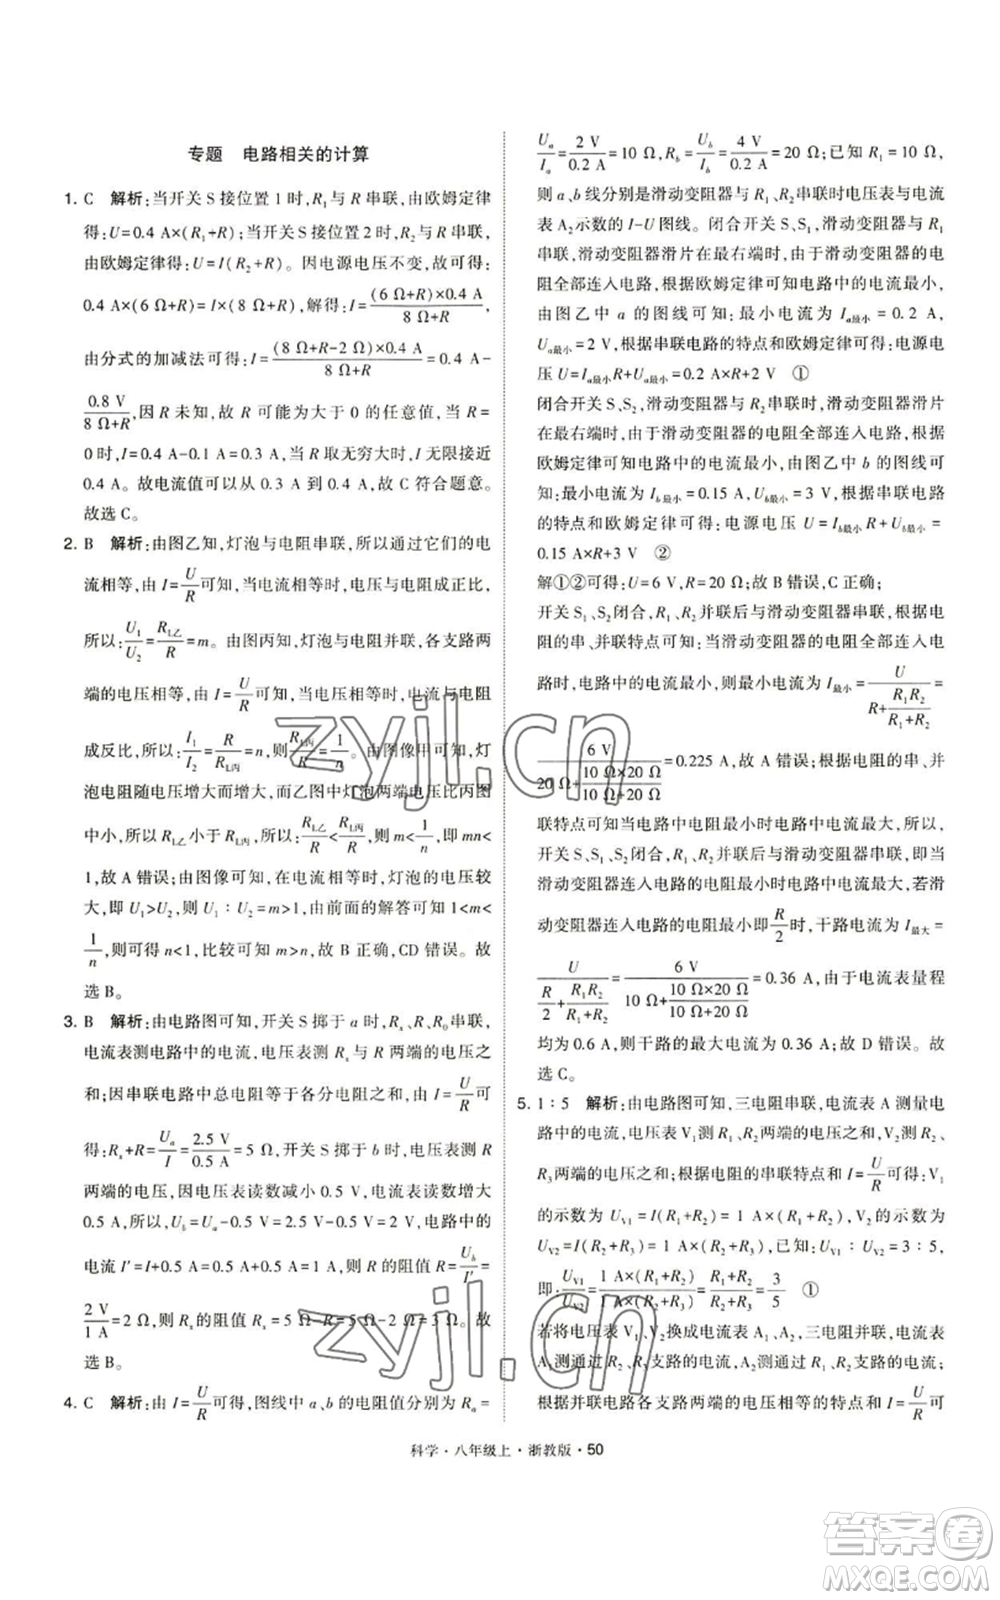 专题 电路相关的计算
1. C 解析:当开关 S 接位置 1 时,R₁与 R 串联,由欧姆定律
得:U=0.4 A×(R₁+R);当开关 S 接位置 2 时,R₂与 R 串联,
由欧姆定律得:U=I(R₂+R)。因电源电压不变,故可得:
0.4 A×(6 Ω+R)=I×(8 Ω+R),解得:I=(6 Ω+R)×0.4 A/8 Ω+R,
由分式的加减法可得:I=(8 Ω+R-2 Ω)×0.4 A/8 Ω+R=0.4 A-
0.8 V/8 Ω+R,因 R 未知,故 R 可能为大于 0 的任意值,当 R=
0 时,I=0.4 A-0.1 A=0.3 A;当 R 取无穷大时,I 无限接近
0.4 A。故电流值可以从 0.3 A 到 0.4 A,故 C 符合题意。
故选 C。
2. B 解析:由图乙知,灯泡与电阻串联,所以通过它们的电
流相等,由 I=U/R可知,当电流相等时,电压与电阻成正比,
所以:U₁/U₂=R_L乙/R=m。由图丙知,灯泡与电阻并联,各支路两
端的电压相等,由 I=U/R可知,当电压相等时,电流与电阻
成反比,所以:I₁/I₂=R/R_L丙=n,则R_L丙/R=1/n。由图像甲可知,灯
泡电阻随电压增大而增大,而乙图中灯泡两端电压比丙图
中小,所以 R_L乙 小于 R_L丙,所以:R_L乙/R<R_L丙/R,则 m<1/n,即 mn<
1,故 A 错误;由图像可知,在电流相等时,灯泡的电压较
大,即 U₁>U₂,则 U₁∶U₂=m>1,由前面的解答可知 1<m<
1/n,则可得 n<1,比较可知 m>n,故 B 正确,CD 错误。故
选 B。
3. B 解析:由电路图可知,开关 S 掷于 a 时,Rₓ、R、R₀串联,
电流表测电路中的电流,电压表测 Rₓ与 R 两端的电压之
和;因串联电路中总电阻等于各分电阻之和,由 I=U/R可
得:Rₓ+R=Uₐ/I=2.5 V/0.5 A=5 Ω,开关 S 掷于 b 时,电压表测 R
两端的电压,因电压表读数减小 0.5 V,电流表读数增大
0.5 A,所以,U_b=Uₐ-0.5 V=2.5 V-0.5 V=2 V,电路中的
电流 I′=I+0.5 A=0.5 A+0.5 A=1 A,则 R 的阻值 R=U_b/I′=
2 V/1 A=2 Ω,则 Rₓ的阻值 Rₓ=5 Ω-R=5 Ω-2 Ω=3 Ω。故
选 B。
4. C 解析:由 I=U/R可得,图线中 a、b 的电阻值分别为 Rₐ=
Uₐ/Iₐ=2 V/0.2 A=10 Ω,R_b=U_b/I_b=4 V/0.2 A=20 Ω;已知 R₁=10 Ω,
则 a、b 线分别是滑动变阻器与 R₁、R₂串联时电压表与电流
表 A₂示数的 I-U 图线。闭合开关 S、S₁,滑动变阻器与 R₁
串联,滑动变阻器滑片在最右端时,由于滑动变阻器的电
阻全部连入电路,根据欧姆定律可知电路中的电流最小,
由图乙中 a 的图线可知:最小电流为 I_a最小=0.2 A,
U_a最小=2 V,根据串联电路的特点和欧姆定律可得:电源电
压 U=I_a最小R+U_a最小=0.2 A×R+2 V ①
闭合开关 S、S₂,滑动变阻器与 R₂串联时,滑动变阻器滑片
在最右端时,由于滑动变阻器的电阻全部连入电路,根据
欧姆定律可知电路中的电流最小,由图乙中 b 的图线可
知:最小电流为 I_b最小=0.15 A,U_b最小=3 V,根据串联电路
的特点和欧姆定律可得:电源电压 U=I_b最小R+U_b最小=
0.15 A×R+3 V ②
解①②可得:U=6 V,R=20 Ω;故 B 错误,C 正确;
开关 S、S₁、S₂闭合,R₁、R₂并联后与滑动变阻器串联,根据电
阻的串、并联特点可知:当滑动变阻器的电阻全部连入电
路时,电路中的电流最小,则最小电流为 I最小=U/(R+R₁R₂/(R₁+R₂))=
6 V/(20 Ω+10 Ω×20 Ω/(10 Ω+20 Ω))=0.225 A,故 A 错误;根据电阻的串、并
联特点可知当电路中电阻最小时电路中电流最大,所以,
开关 S、S₁、S₂闭合,R₁、R₂并联后与滑动变阻器串联,即当
滑动变阻器连入电路的电阻最小时电流最大,若滑
动变阻器连入电路的电阻最小即R/2时,干路电流为 I最大=
U/(R/2+R₁R₂/(R₁+R₂))=6 V/(10 Ω+10 Ω×20 Ω/(10 Ω+20 Ω))=0.36 A,由于电流表量程
均为 0.6 A,则干路的最大电流为 0.36 A;故 D 错误。故
选 C。
5. 1∶5 解析:由电路图可知,三电阻串联,电流表 A 测量电
路中的电流,电压表 V₁测 R₁、R₂两端的电压之和,V₂测 R₂、
R₃两端的电压之和;根据电阻的串联特点和 I=U/R可得:V₁
的示数为 U_V1=I(R₁+R₂)= 1 A×(R₁+R₂),V₂的示数为
U_V2=I(R₂+R₃)= 1 A×(R₂+R₃),因为 U_V1∶U_V2=3∶5,
即:U_V1/U_V2=1 A×(R₁+R₂)/1 A×(R₂+R₃)=R₁+R₂/R₂+R₃=3/5 ①
若将电压表 V₁、V₂换成电流表 A₁、A₂,三电阻并联,电流表
A₁测 R₂、R₃支路的电流,A₂测通过 R₁、R₂支路的电流;
根据并联电路两端的电压相等和 I=U/R可
科学·八年级上·浙教版·50
zyjl.cn
zyjl.cn
答案圈
MXQE.COM